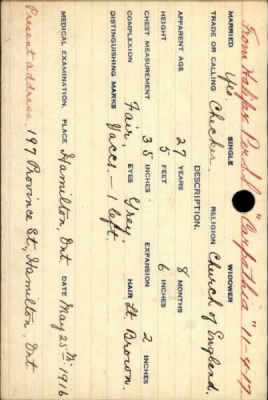 From Halifax Per S.S. "Carpathia" 11-4-17
MARRIED Yes SINGLE WIDOWER
TRADE OR CALLING Checker RELIGION Church of England.
DESCRIPTION.
APPARENT AGE 27 YEARS 8 MONTHS
HEIGHT 5 FEET 6 INCHES
CHEST MEASUREMENT 35 INCHES EXPANSION 2 INCHES
COMPLEXION Fair. EYES Grey. HAIR Lt. Brown.
DISTINGUISHING MARKS Vaccs. - 1 left.
MEDICAL EXAMINATION. PLACE Hamilton, Ont. DATE May 25th 1916
Present address. 197 Province St., Hamilton, Ont.